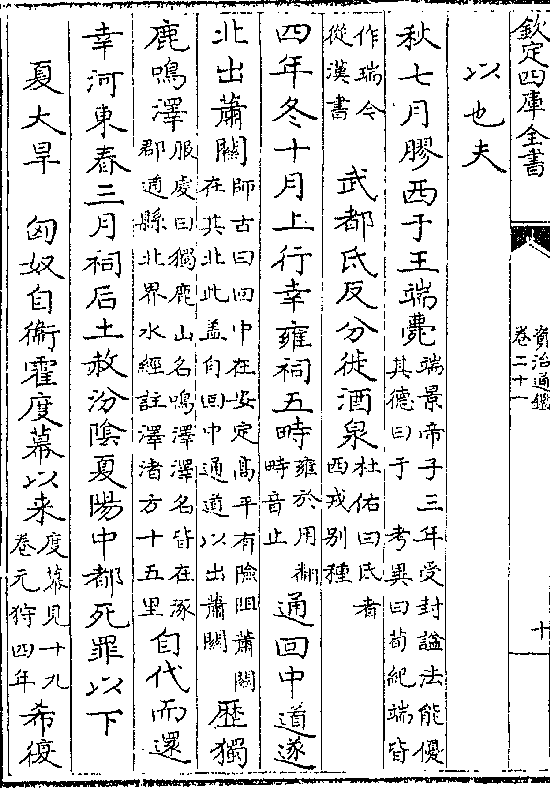 欽定四庫全書
資治通鑑
卷二十一
十
以也夫
秋七月膠西于王端薨端景帝子三年受封諡法能優其德曰于　考異曰荀紀端皆
作瑞今從漢書　武都氐反分徙酒泉杜佑曰氐者西戎别種
四年冬十月上行幸雍祠五畤雍於用翻畤音止　通回中道遂
北出蕭關師古曰回中在安定髙平有險阻蕭關在其北此蓋自回中通道以出蕭關　歴獨
鹿鳴澤服虔曰獨鹿山名鳴澤澤名皆在涿郡遒縣北界水經註澤渚方十五里　自代而還
幸河東春三月祠后土赦汾隂夏陽中都死罪以下
夏大旱　匈奴自衞霍度幕以来度幕見十九卷元狩四年　希復